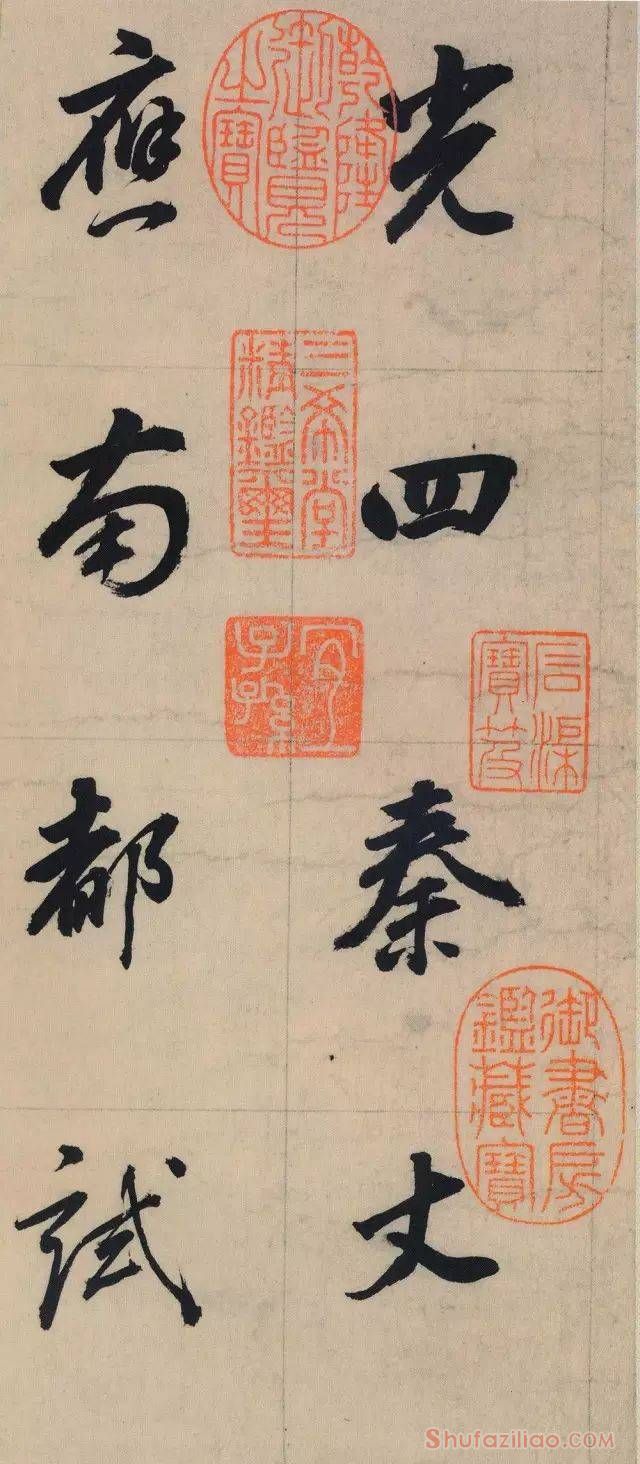 光四秦丈
應南都試
乾隆御覽之寶
三希堂精鑑璽
宜子孫
石渠寶笈
御書房鑑藏寶
Shufaziliao.com